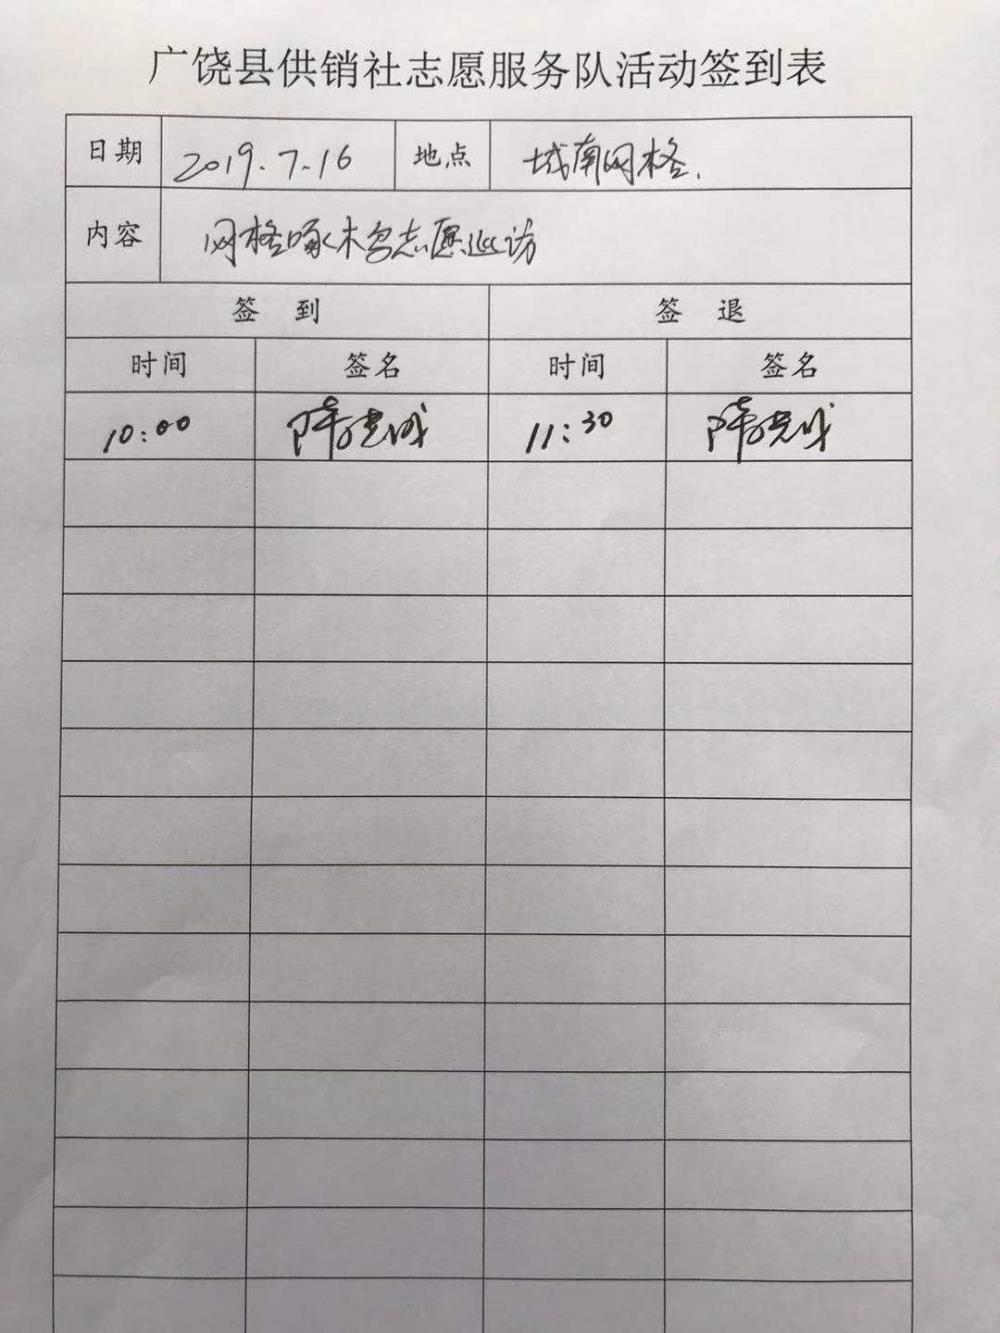 广饶县供销社志愿服务队活动签到表
日期 2019.7.16 地点 城南网格.
内容 网格啄木鸟志愿巡访
签 到 签 退
时间 签名 时间 签名
10:00 11:30